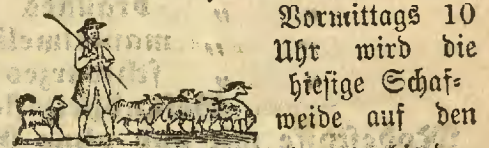 Vormittags 10
Uhr wird die
hiesige Schaf⸗
weide auf den